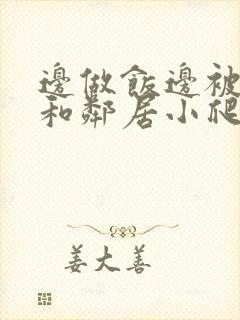 邊做飯邊被
和鄰居小爬
姜大善